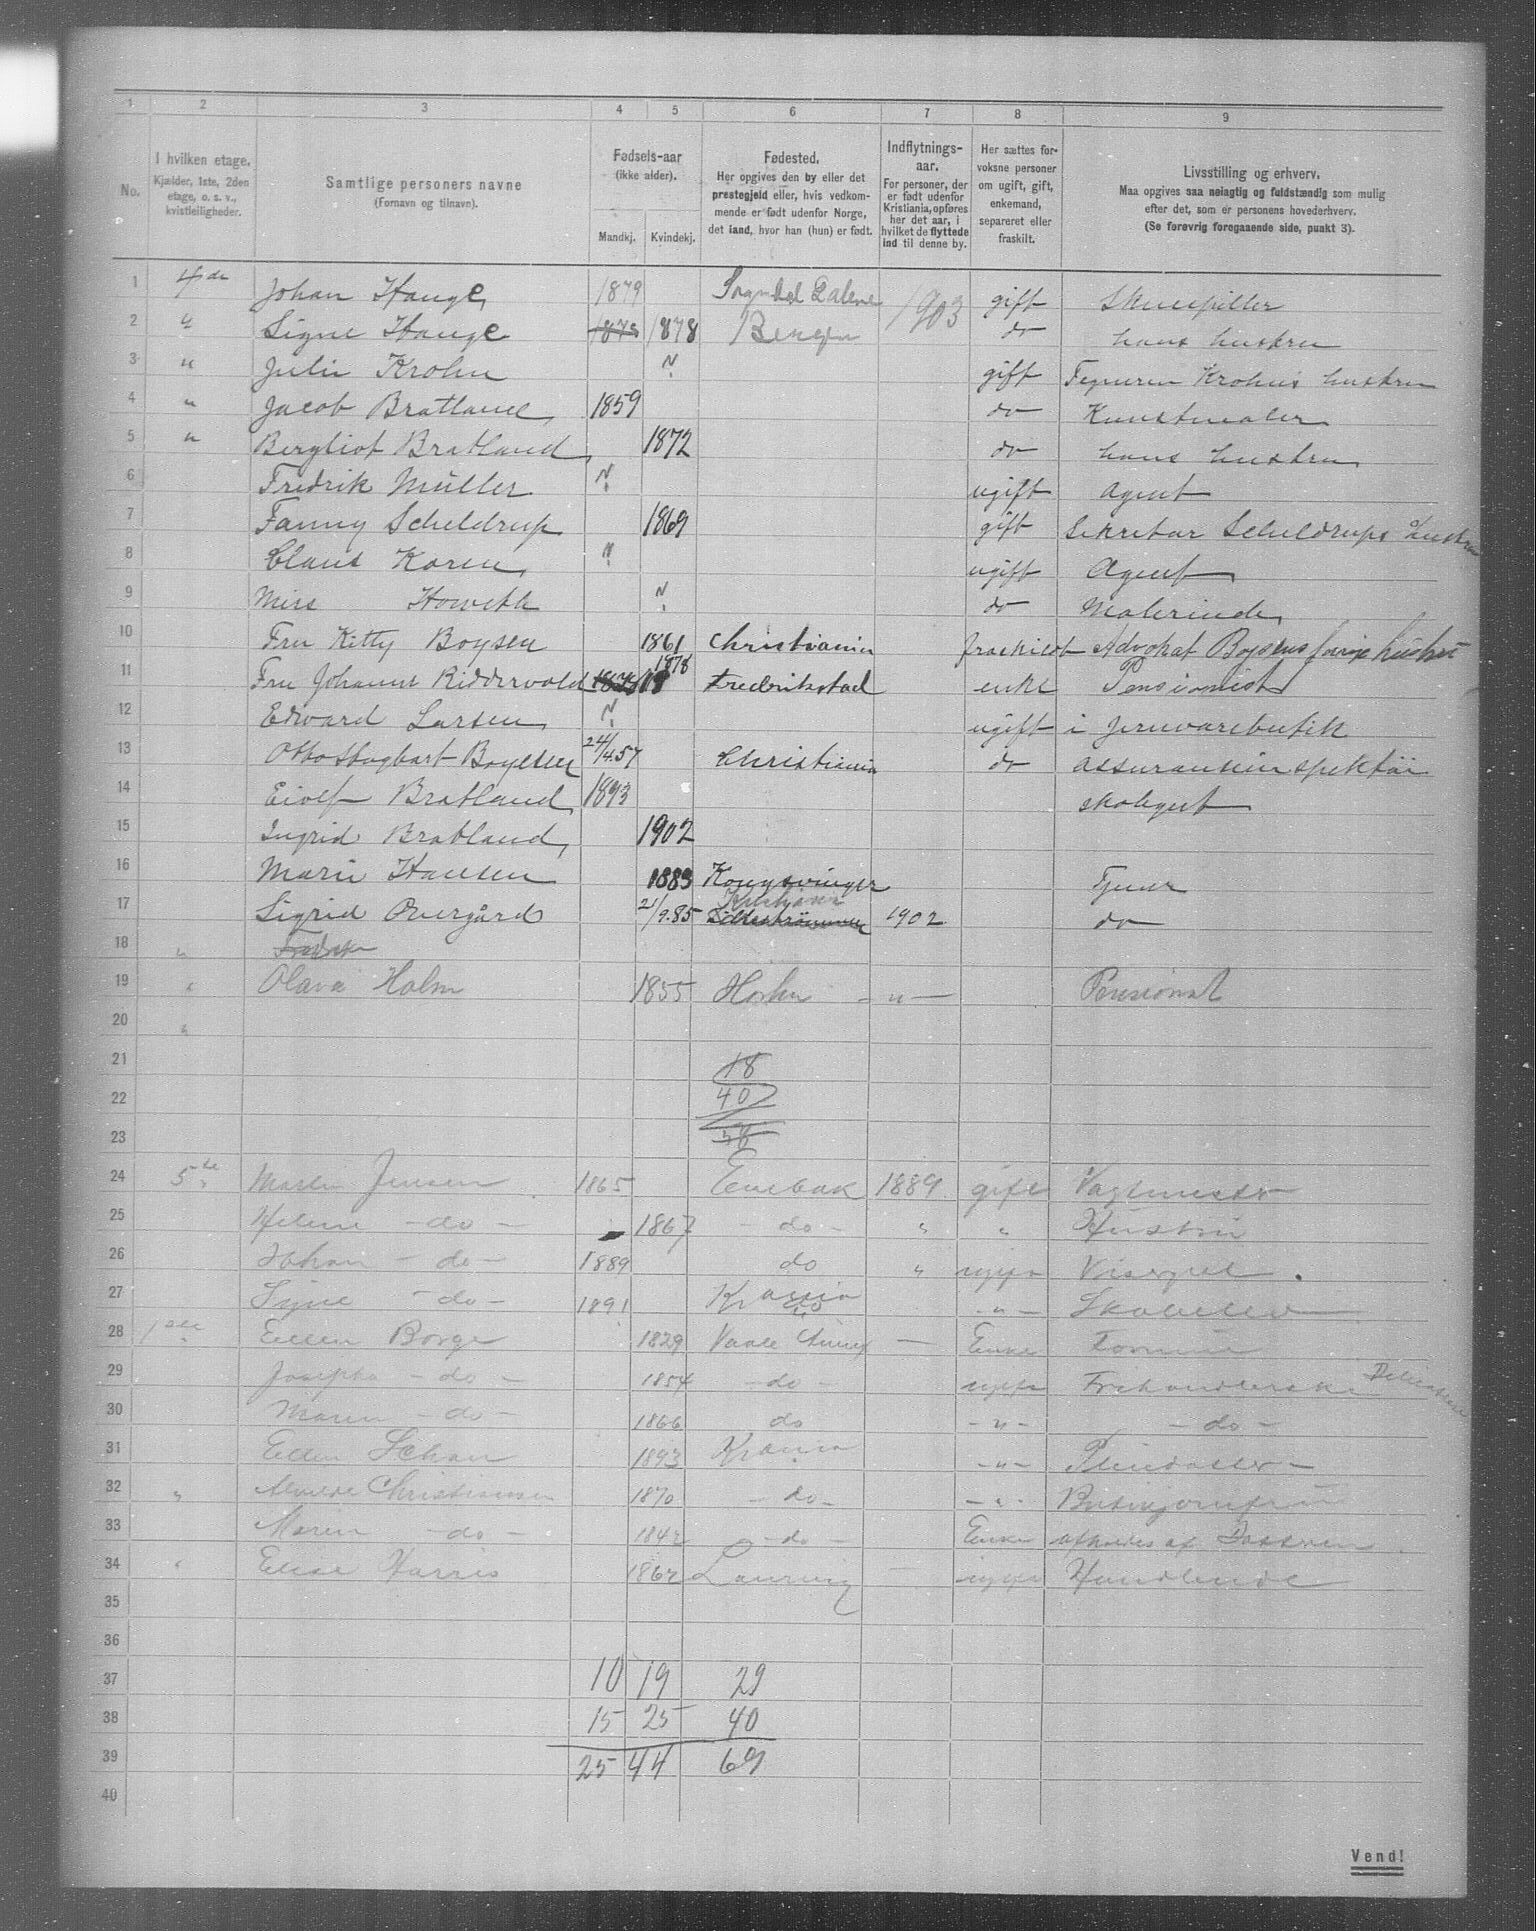 1 2 3 4 5 6 7 8 9
No.
I hvilken etage.
Kjælder, 1ste, 2den
etage, o. s. v.,
kvistleiligheder.
Samtlige personers navne
(Fornavn og tilnavn).
Fødsels-aar
(ikke alder).
Mandkj. Kvindekj.
Fødested.
Her opgives den by eller det
prestegjeld eller, hvis vedkom-
mende er født udenfor Norge,
det land, hvor han (hun) er født.
Indflytnings-
aar.
For personer, der
er født udenfor
Kristiania, opføres
her det aar, i
hvilket de flyttede
ind til denne by.
Her sættes for-
voksne personer
om ugift, gift,
enkemand,
separeret eller
fraskilt.
Livsstilling og erhverv.
Maa opgives saa nøiagtig og fuldstændig som mulig
efter det, som er personens hovederhverv.
(Se forøvrig foregaaende side, punkt 3).
1 4de Johan Hauge 1879 Sogndal Dalene 1903 gift Skuespiller
2 " Signe Hauge 1878 1878 Bergen do hans hustru
3 " Julie Krohn ? gift Krohns hustru
4 " Jacob Bratland 1859 do Kunstmaler
5 " Bergliot Bratland 1872 do hans hustru
6 Fredrik Müller ? ugift Agent
7 Fanny Scheldrup 1869 gift Sekretær Scheldrups hustru
8 Claus Koren ? ugift Agent
9 Miss Howeth ? do Malerinde
10 Fru Kitty Boysen 1861 Christiania fraskildt Advokat Boysens forrige hustru
11 Fru Johanne Riddervold 1878 1878 Fredrikstad enke Pensionist
12 Edvard Larsen ? ugift i Jernvarebutik
13 Otto Hagbart Boysen 24/4.57 Christiania do assuranceinspektør
14 Eiolf Bratland 1893 skolegut
15 Ingrid Bratland 1902
16 Marie Hansen 1883 Kongsvinger Tjener
17 Sigrid Overgård 21/9.85 Kristiania 1902 do
18 "
19 " Olava Holm 1855 - " - Pensionat
20 "
21 18
22 40
23 58
24 5te Martin Jensen 1865 Enebak 1889 gift Vagtmester
25 Helene - do - 1867 - do - " " Hustru
26 Johan - do - 1889 do " ugift Visergut.
27 Signe - do - 1891 Krania - " -
28 1ste Ellen Borge 1829 Vaale - Enke
29 Josepha - do - 1854 - do - ugift Frihandlerske
30 Maren - do - 1866 do - " - - do -
31 Ellen 1893 Krania - " -
32 " Christiansen 1870 - do - - " -
33 Maren - do - 1842 - do - Enke af Datteren
34 " Elise Harris 1862 Laurvig ugift Handlende
35
36
37 10 19 29
38 15 25 40
39 25 44 69
40
Vend!